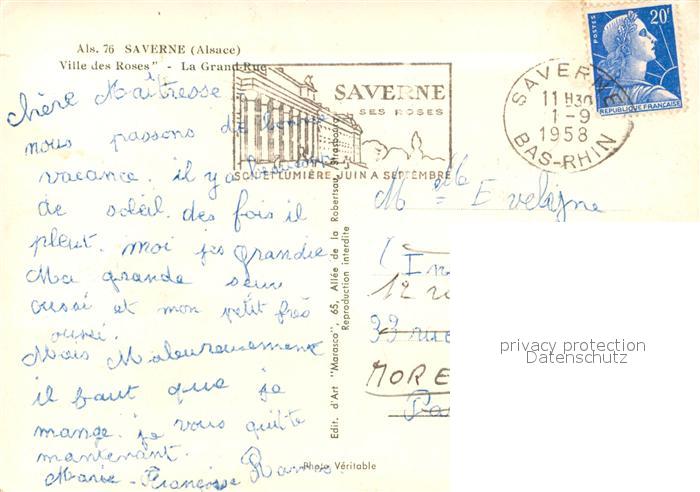 Als. 76 SAVERNE (Alsace)
Ville des Roses" - La Grand'Rue
SAVERNE
SES ROSES
SON ET LUMIÈRE JUIN A SEPTEMBRE
SAVERNE
11 H30
1-9
1958
BAS-RHIN
POSTES
20f
REPUBLIQUE FRANÇAISE
chère Maîtresse
nous passons de bonne
vacance. il y a
de soleil. des fois il
pleut. moi jes grandie
Ma grande seur
oussi et mon petit frès
oussi.
Mais Maleureusement
il faut que je
mange. je vous quitte
maintenant.
Marie-Françoise
Edit. d'Art "Marasco", 65, Allée de la Robertsau, Strasbourg
Reproduction interdite
Photo Véritable
Melle Eveligne
( In
12 ru
33 rue
MORE
Pa
privacy protection
Datenschutz